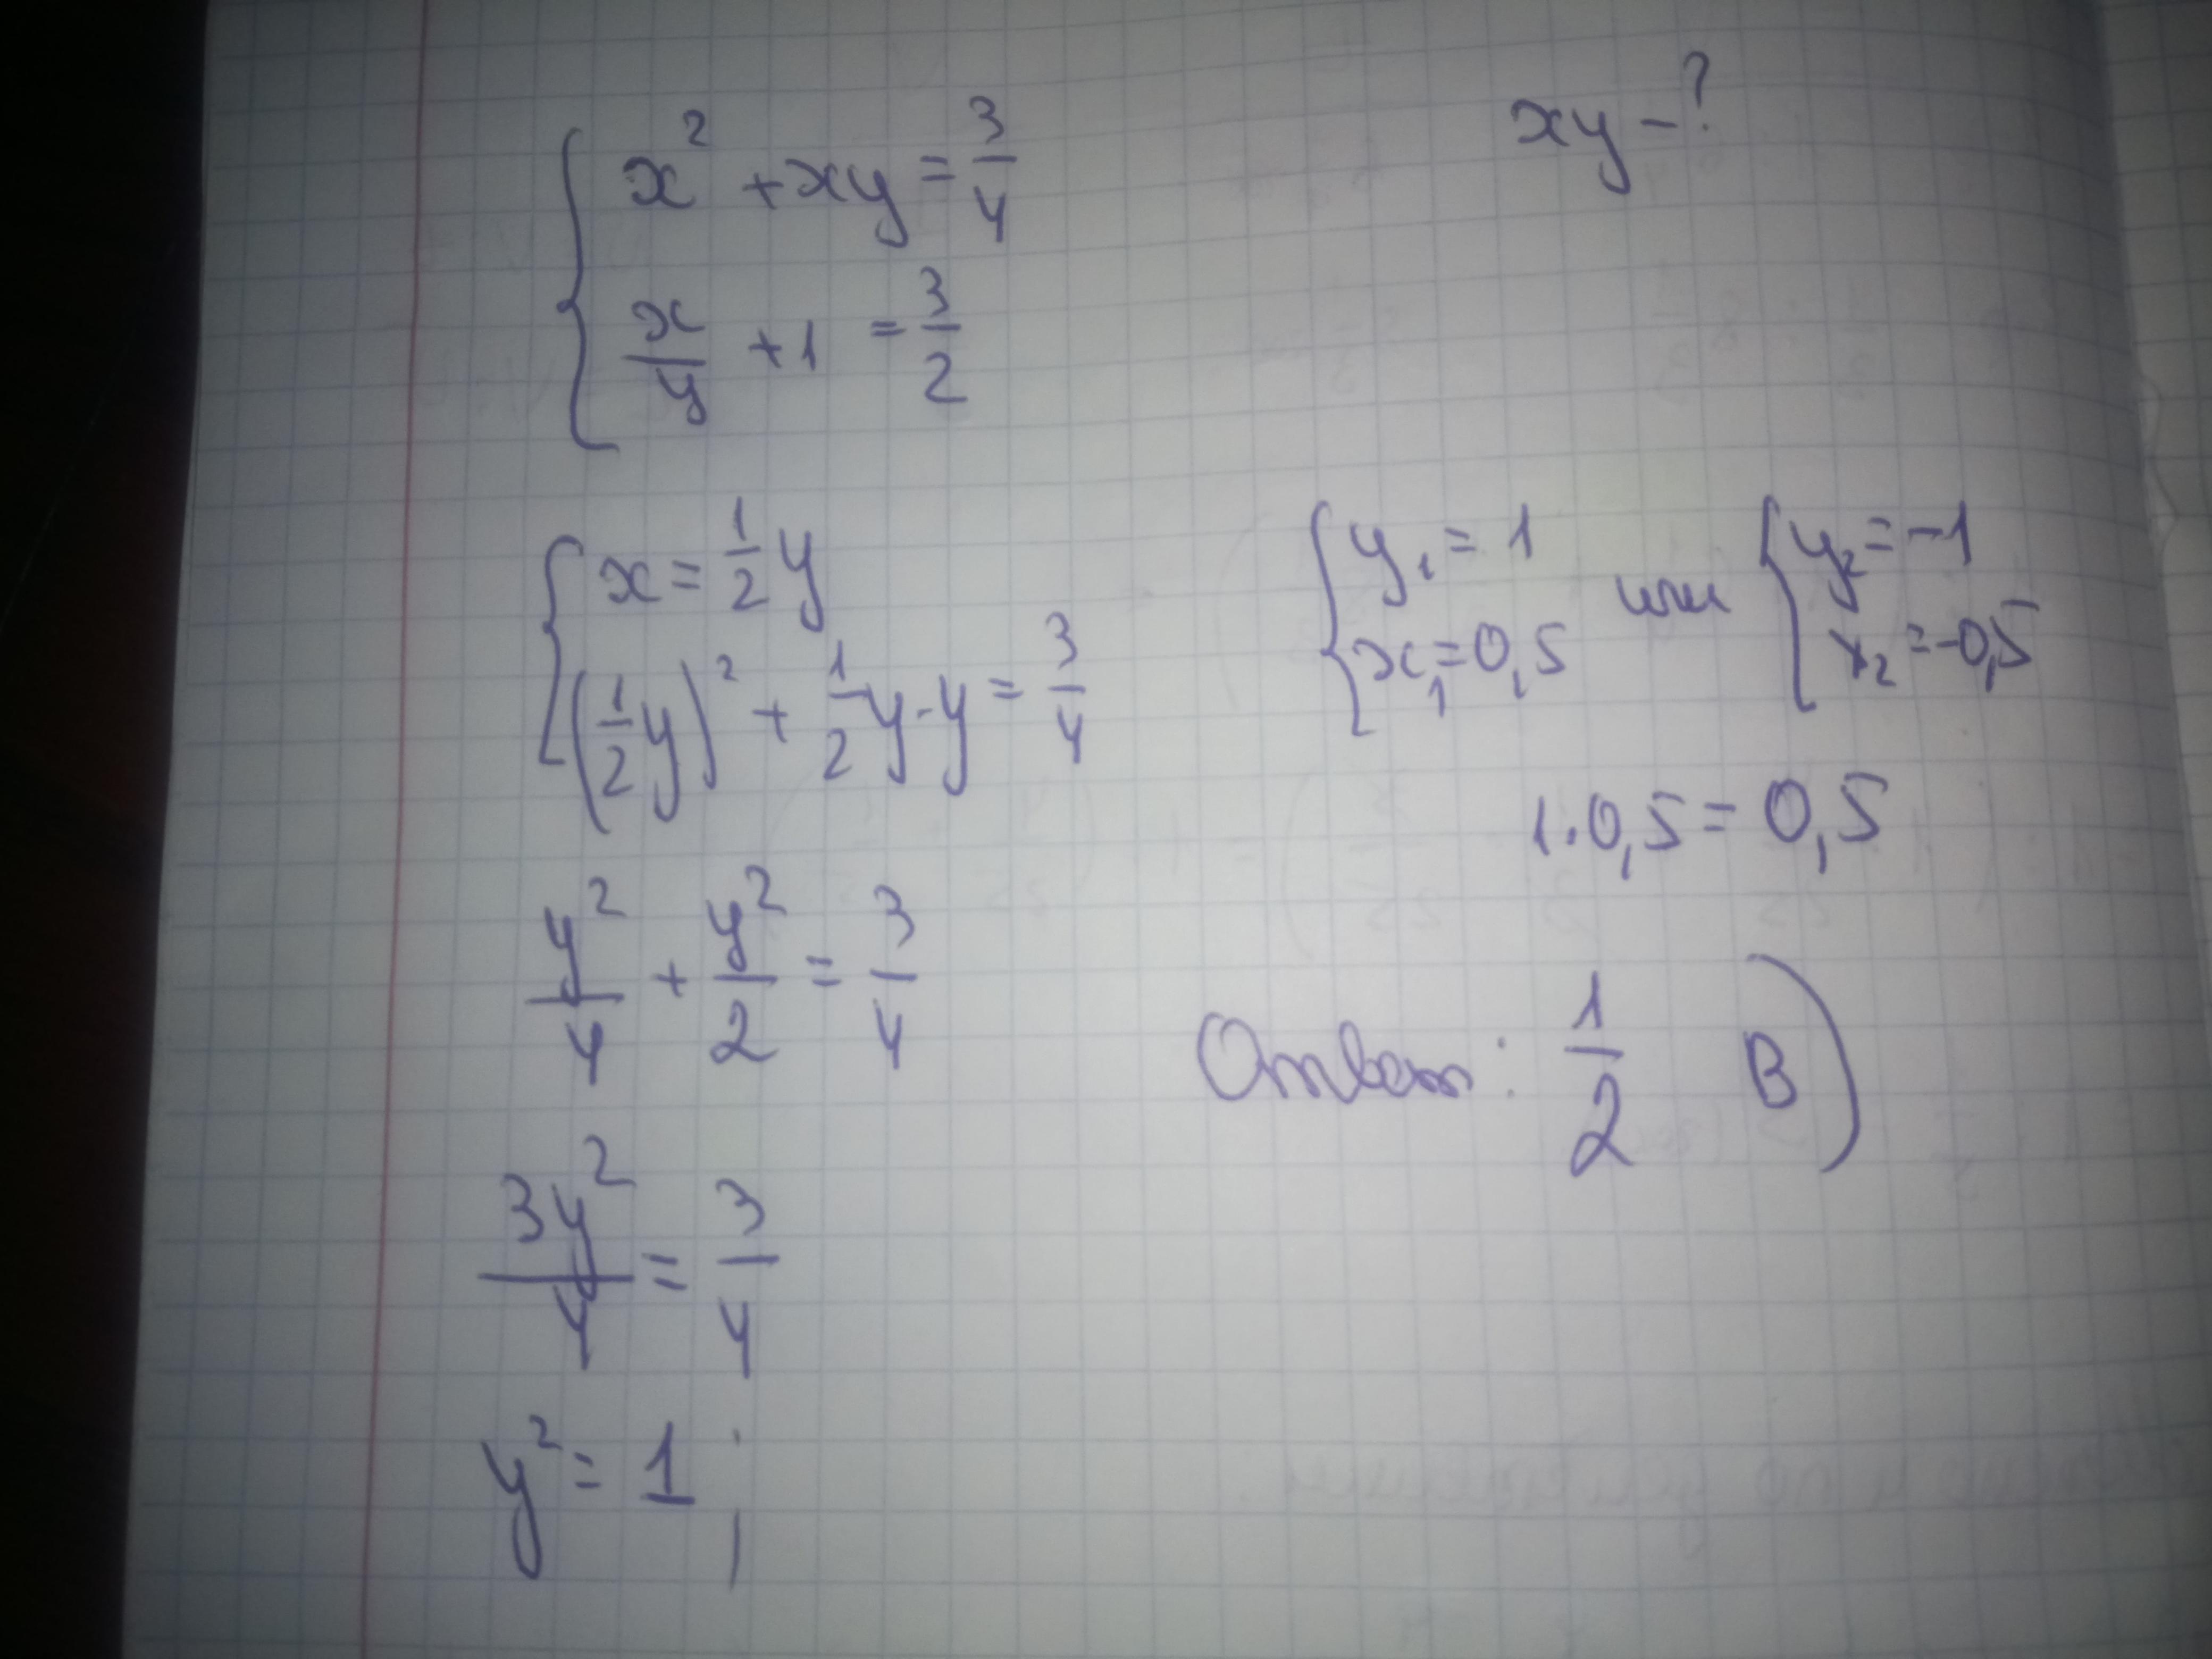 x² + xy = 3/4
xy - ?
x/y + 1 = 3/2
x = 1/2 y
(1/2 y)² + 1/2 y · y = 3/4
y²/4 + y²/2 = 3/4
3y²/4 = 3/4
y² = 1;
y₁ = 1
x₁ = 0,5
или
y₂ = -1
x₂ = -0,5
1 · 0,5 = 0,5
Ответ: 1/2 В)